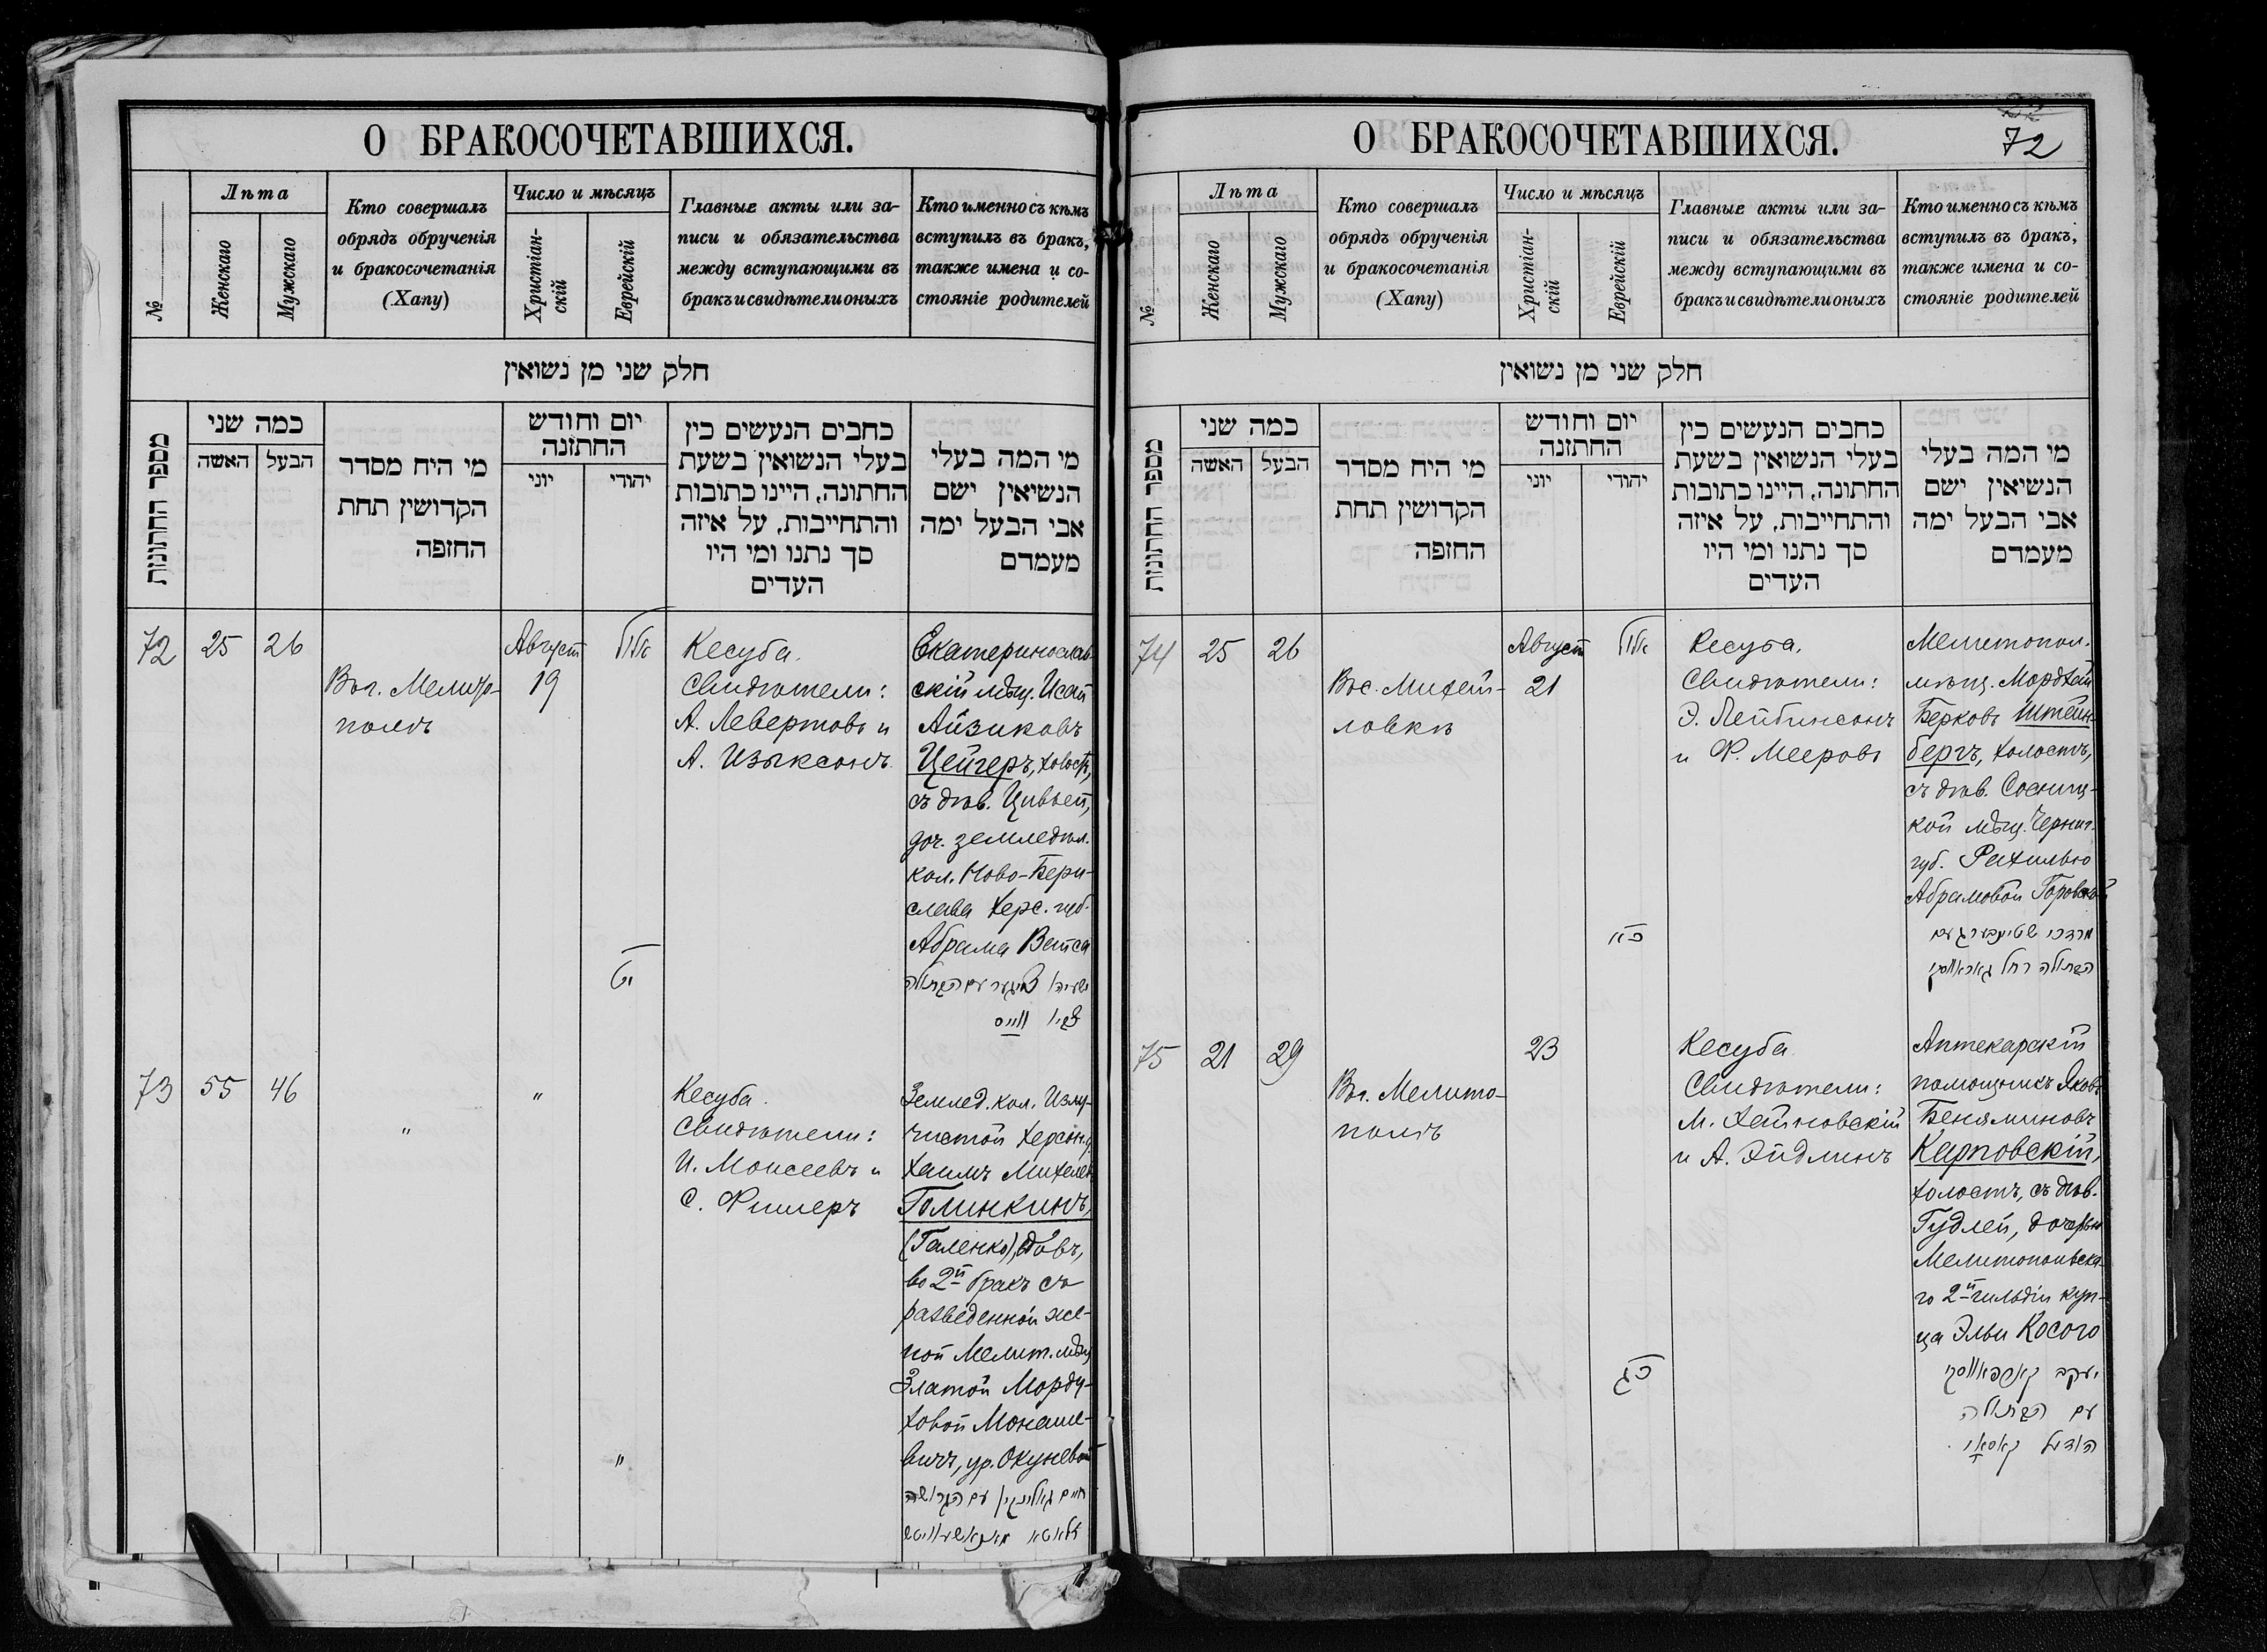 О БРАКОСОЧЕТАВШИХСЯ.
№
Лѣта
Женскаго
Мужскаго
Кто совершалъ
обрядъ обрученія
и бракосочетанія
(Хапу)
Число и мѣсяцъ
Христіан-
скій
Еврейскій
Главные акты или за-
писи и обязательства
между вступающими въ
бракъ и свидѣтели оныхъ
Кто именно съ кѣмъ
вступилъ въ бракъ,
также имена и со-
стояніе родителей
חלק שני מן נשואין
מספר החתונות
כמה שני
האשה
הבעל
מי היח מסדר
הקדושין תחת
החופה
יום וחודש
החתונה
יוני
יהודי
כחבים הנעשים כין
בעלי הנשואין בשעת
החתונה, היינו כתובות
והתחייבות, על איזה
סך נתנו ומי היו
העדים
מי המה בעלי
הנשיאין ישם
אבי הבעל ימה
מעמדם
72
25
26
Въ г. Мелито-
полѣ
Августъ
19
אלול
יט
Кесуба.
Свидѣтели:
А. Левертовъ и
А. Изыксонъ
Екатеринослав-
скій мѣщ. Исай
Айзиковъ
Цейгеръ, холостъ,
съ дѣв. Цивьей,
доч. земледѣл.
кол. Ново-Бери-
слава Херс. губ.
Абрама Вайса
ישעיהו צייגער עם הבתולה
צביו ווייס
73
55
46
"
"
"
Кесуба.
Свидѣтели:
И. Моисеевъ и
С. Фишеръ
Землед. кол. Излу-
чистой Херсон. г.
Хаимъ Михелев
Голинкинъ,
(Галенко), вдовъ,
во 2й бракъ съ
разведенной же-
ной Мелит. мѣщ.
Златой Морду-
ховой Монаше-
вичъ, ур. Окуневой
חיים גאלינקין עם הגרושה
זלאטא מאנאשעוויטש
О БРАКОСОЧЕТАВШИХСЯ.
72
№
Лѣта
Женскаго
Мужскаго
Кто совершалъ
обрядъ обрученія
и бракосочетанія
(Хапу)
Число и мѣсяцъ
Христіан-
скій
Еврейскій
Главные акты или за-
писи и обязательства
между вступающими въ
бракъ и свидѣтели оныхъ
Кто именно съ кѣмъ
вступилъ въ бракъ,
также имена и со-
стояніе родителей
חלק שני מן נשואין
מספר החתונות
כמה שני
האשה
הבעל
מי היח מסדר
הקדושין תחת
החופה
יום וחודש
החתונה
יוני
יהודי
כחבים הנעשים כין
בעלי הנשואין בשעת
החתונה, היינו כתובות
והתחייבות, על איזה
סך נתנו ומי היו
העדים
מי המה בעלי
הנשיאין ישם
אבי הבעל ימה
מעמדם
74
25
26
Въ с. Михай-
ловкѣ
Августъ
21
אלול
כ"א
Кесуба.
Свидѣтели:
Э. Лейбинсонъ
и Ф. Мееровъ
Мелитопол.
мѣщ. Мордхай
Берковъ Штейн-
бергъ, холостъ,
съ дѣв. Сосниц-
кой мѣщ. Черниг.
губ. Рахилью
Абрамовой Горовской
מרדכי שטיינבערג עם
הבתולה רחל גאראווסקי
75
21
29
Въ г. Мелито-
полѣ
23
כג
Кесуба
Свидѣтели:
М. Хайновскій
и А. Эйдлинъ
Аптекарскій
помощникъ Яковъ
Беняминовъ
Карповскій,
холостъ, съ дѣв.
Гудлей, дочерью
Мелитопольска-
го 2й гильдіи куп-
ца Эльи Косого
יעקב קארפאווסקי
עם הבתולה
הודיל קאסאי